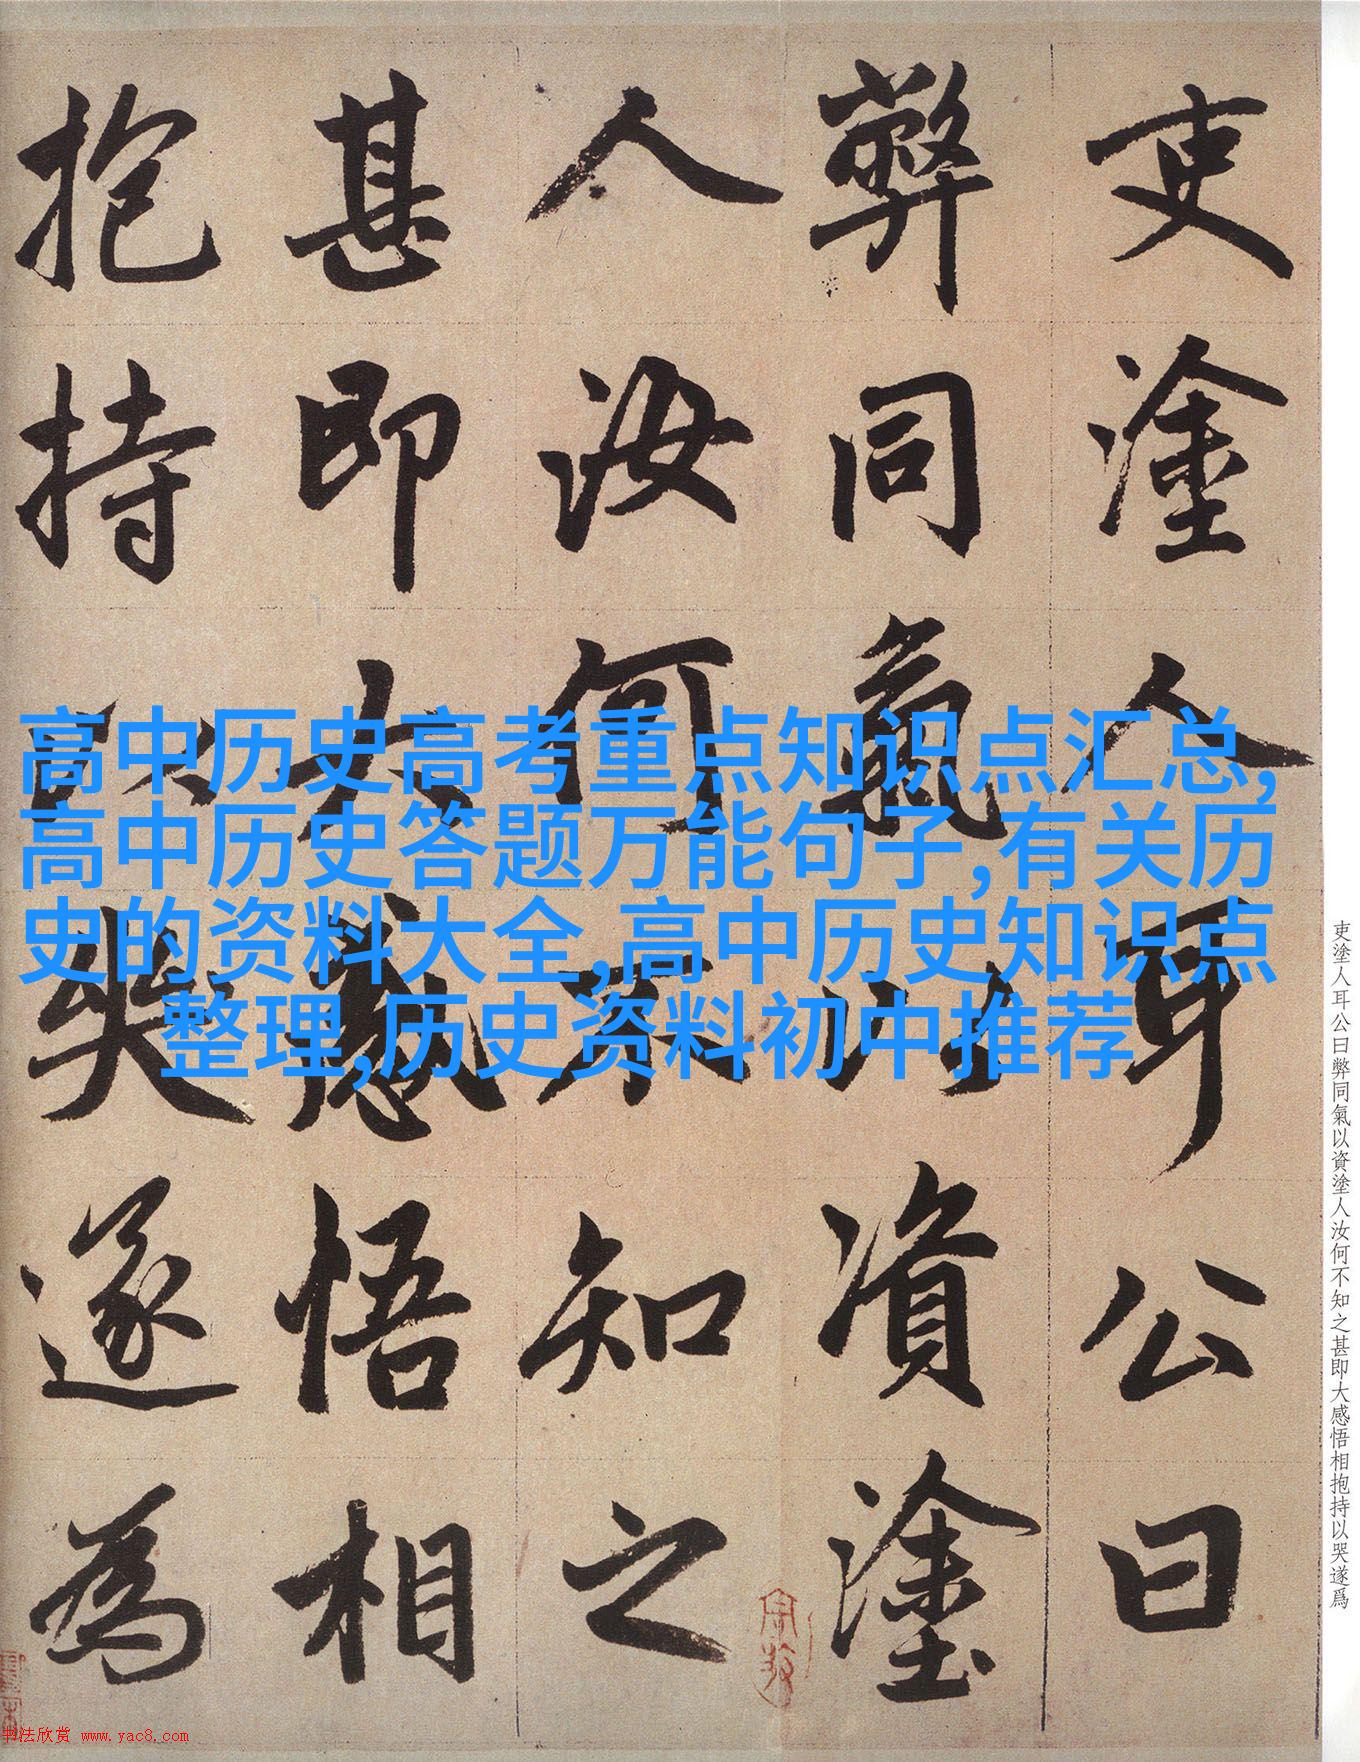 吏塗人耳公曰
弊同氣以資塗
人汝何不知之
甚即大感悟相
抱持以哭遂為
高中历史高考重点知识点汇总,
高中历史答题万能句子,有关历
史的资料大全,高中历史知识点
整理,历史资料初中推荐
吏塗人耳公曰弊同氣以資塗人汝何不知之甚即大感悟相抱持以哭遂爲
书法欣赏 www.yac8.com